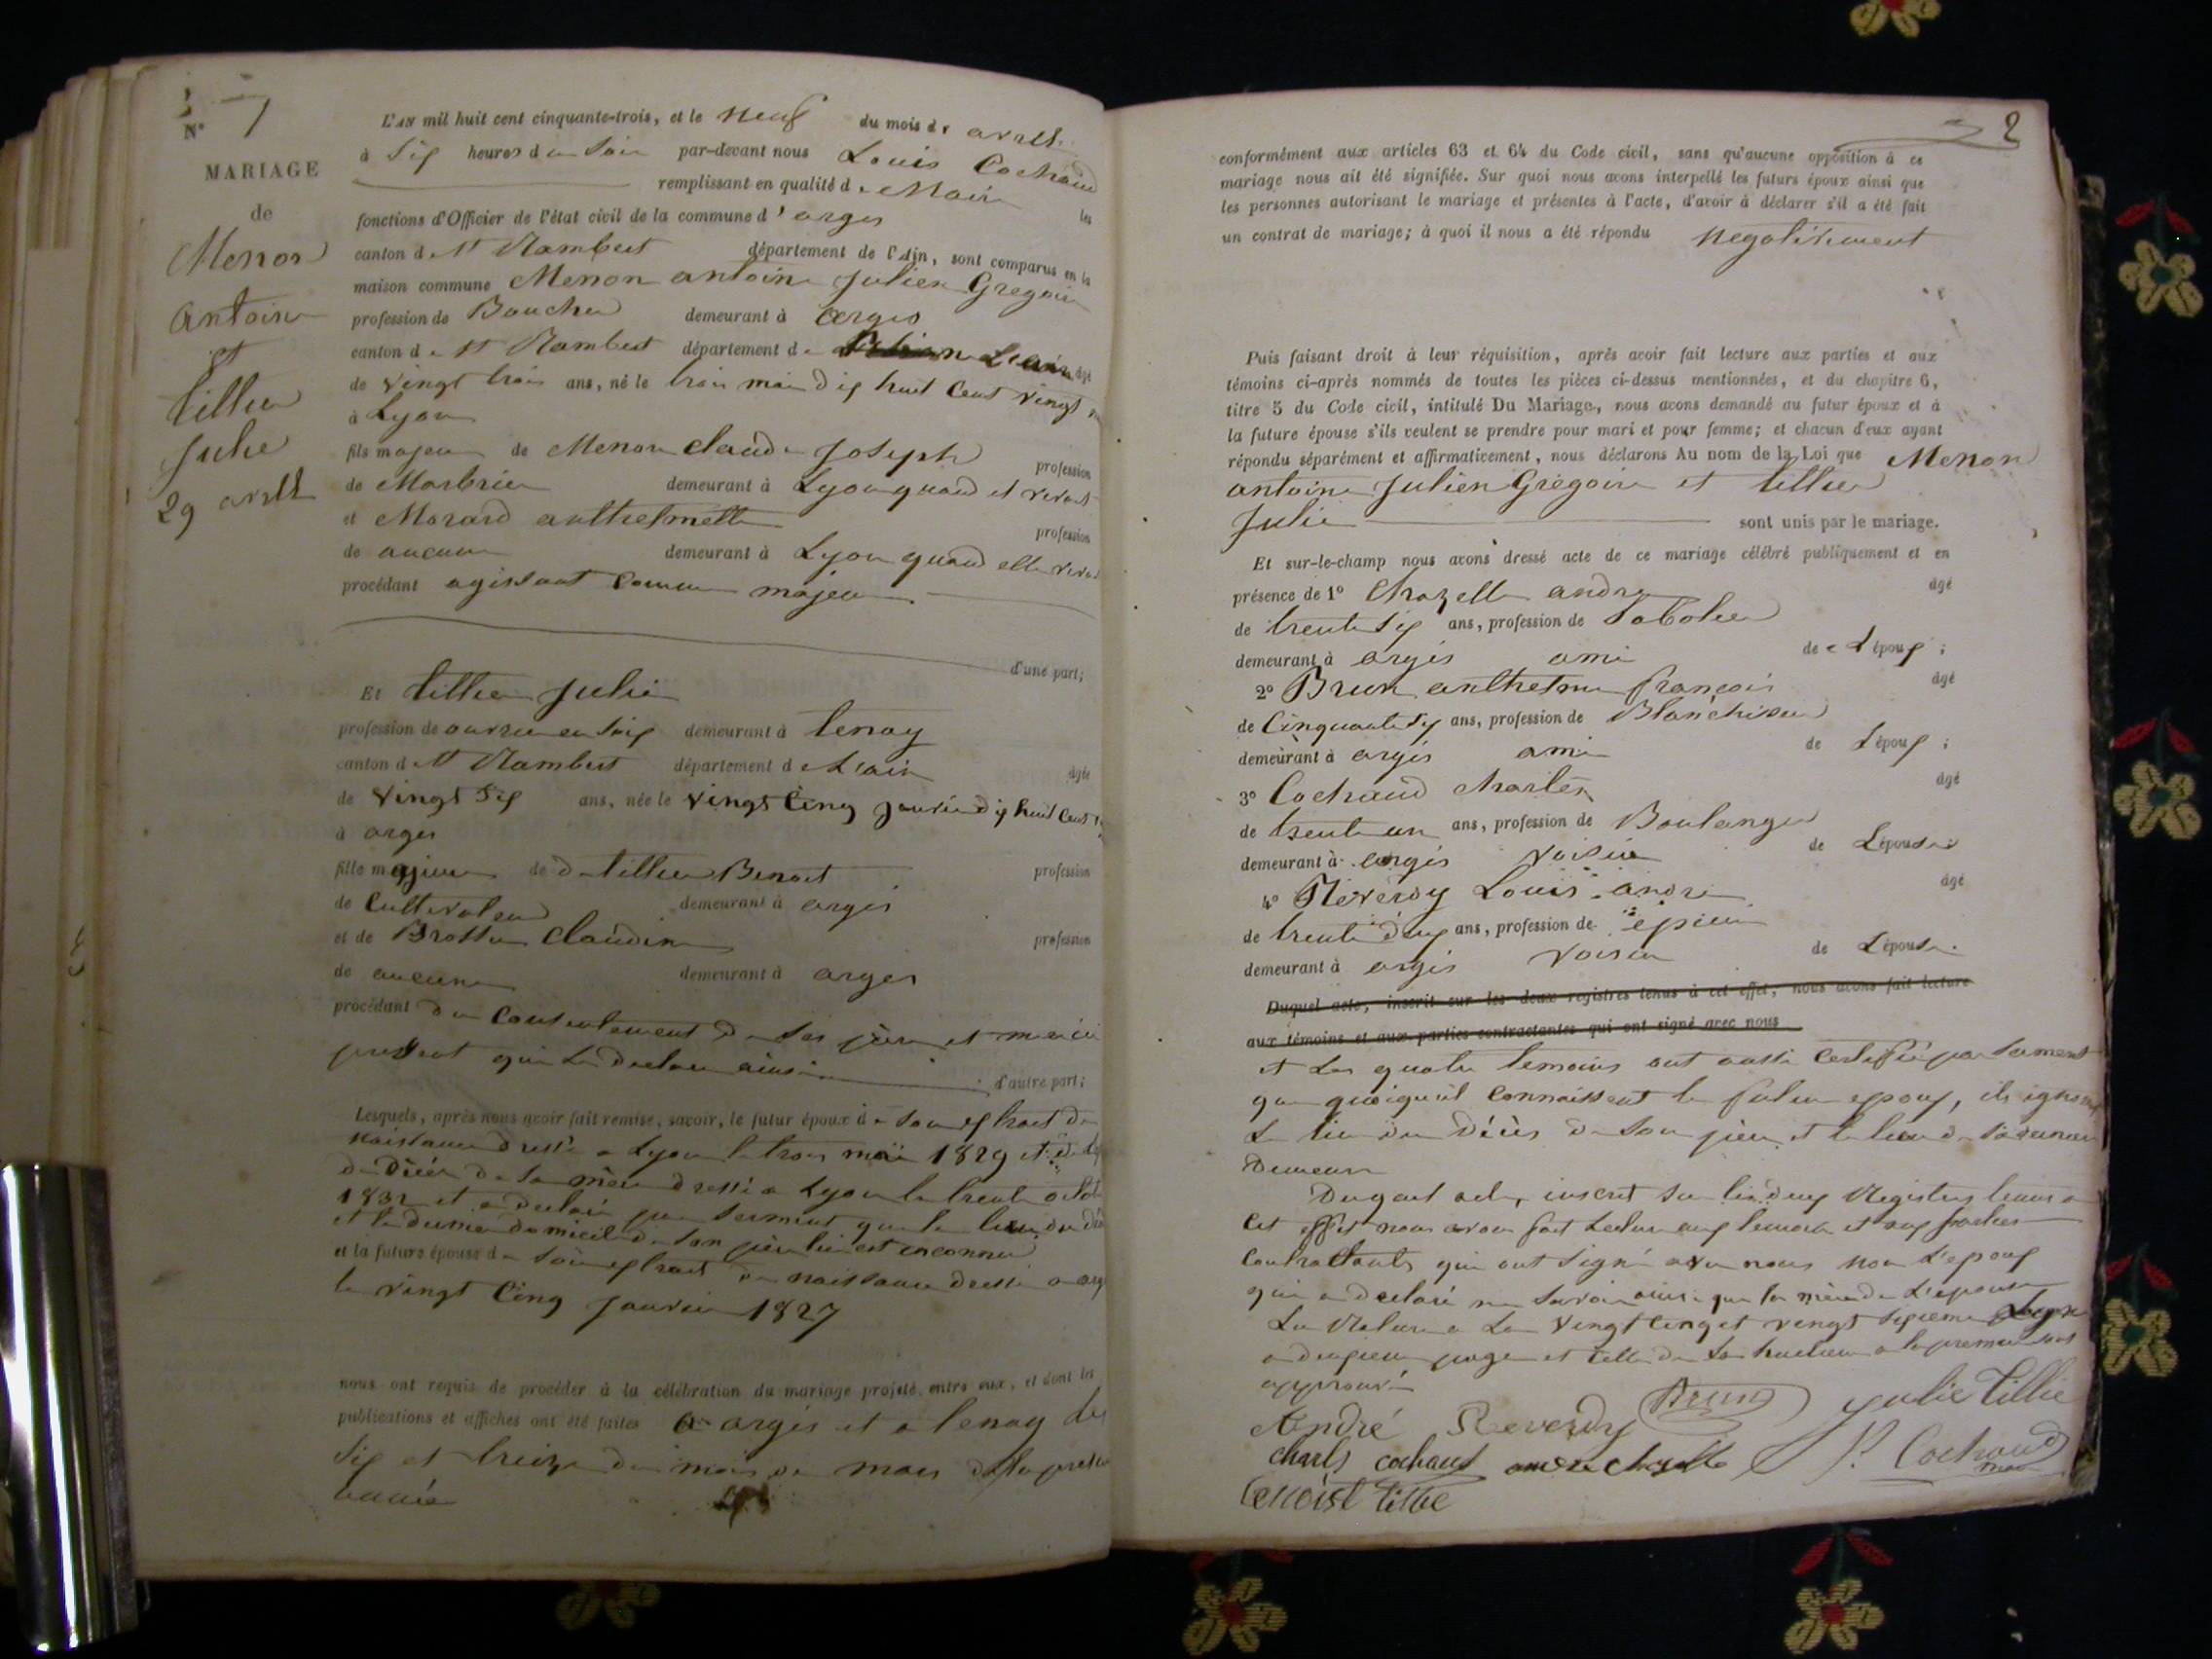 N° 7
MARIAGE
de
Menon
Antoine
et
tillier
Julie
29 avril
L'AN mil huit cent cinquante-trois, et le neuf du mois de avril
à Six heures du Soir par-devant nous Louis Cochaud
remplissant en qualité de Maire les
fonctions d'Officier de l'état civil de la commune d'arges
canton de St Rambert département de l'Ain, sont comparus en la
maison commune Menon antoine Julien Gregoire
profession de Boucher demeurant à Arges
canton de St Rambert département de L'ain âgé
de vingt trois ans, né le trois mai dix huit Cent vingt
à Lyon
fils majeur de Menon Claude Joseph profession
de Marbrier demeurant à Lyon quand il vivait
et Morard anthelmette profession
de aucune demeurant à Lyon quand elle vivait
procédant agissant Comme majeur
d'une part;
Et tillier Julie
profession de ouvrier en Soix demeurant à tenay
canton de St Rambert département de L'ain âgée
de vingt Six ans, née le vingt Cinq Janvier dix huit Cent
à arges
fille majeure de tillier Benoit profession
de Cultivateur demeurant à arges
et de Brottier Claudine profession
de aucune demeurant à arges
procédant du Consentement de Ses père et mère ici
present qui Le declare ainsi d'autre part;
Lesquels, après nous avoir fait remise, savoir, le futur époux de Son extrait de
naissance dressé a Lyon le trois mai 1829 et
de Décès de Sa mère dressé a Lyon le trente octobre
1832 et a declaré par Serment que le lieu du décès
et le dernier domicile de Son père lui est inconnu
et la future épouse de Son extrait de naissance dressé a arges
le vingt Cinq Janvier 1827
nous ont requis de procéder à la célébration du mariage projeté entre eux, et dont les
publications et affiches ont été faites a arges et a tenay les
Six et treize du mois de mars de la presente
année
2
conformément aux articles 63 et 64 du Code civil, sans qu'aucune opposition à ce
mariage nous ait été signifiée. Sur quoi nous avons interpellé les futurs époux ainsi que
les personnes autorisant le mariage et présentes à l'acte, d'avoir à déclarer s'il a été fait
un contrat de mariage; à quoi il nous a été répondu Negativement
Puis faisant droit à leur réquisition, après avoir fait lecture aux parties et aux
témoins ci-après nommés de toutes les pièces ci-dessus mentionnées, et du chapitre 6,
titre 5 du Code civil, intitulé Du Mariage, nous avons demandé au futur époux et à
la future épouse s'ils veulent se prendre pour mari et pour femme; et chacun d'eux ayant
répondu séparément et affirmativement, nous déclarons Au nom de la Loi que Menon
antoine Julien Grégoire et tillier
Julie sont unis par le mariage.
Et sur-le-champ nous avons dressé acte de ce mariage célébré publiquement et en
présence de 1° Chazelle andré âgé
de trente Six ans, profession de Sabotier
demeurant à argis ami de L'époux ;
2° Brun anthelme françois âgé
de Cinquante Six ans, profession de Blanchisseur
demeurant à argis ami de L'époux ;
3° Cochaud Charles âgé
de trente un ans, profession de Boulanger
demeurant à argis voisin de L'épouse
4° Reverdy Louis andré âgé
de trente deux ans, profession de epicier
demeurant à argis voisin de L'épouse
Duquel acte, inscrit sur les deux registres tenus à cet effet, nous avons fait lecture
aux témoins et aux parties contractantes qui ont signé avec nous
et Les quatre temoins ont aussi Certifié par Serment
que quoiqu'il Connaissent le futur epoux, ils ignorent
Le lieu du Décès de Son père et le lieu de Sa derniere
Demeure
Duquel acte, inscrit Sur les deux Registres tenus a
Cet effet nous avons fait Lecture aux temoins et aux parties
Contractants qui ont Signé avec nous non L'epoux
qui a declaré ne Savoir ainsi que la mère de L'epouse
La Rature a La vingt Cinq et vingt Sixieme Ligne
a deuxieme page et Celle de la huitieme a la premiere sont
approuvé
André Reverdy Brun Julie Tillie
charls cochaud andre chazelle L. Cochaud
maire
Benoist tillie